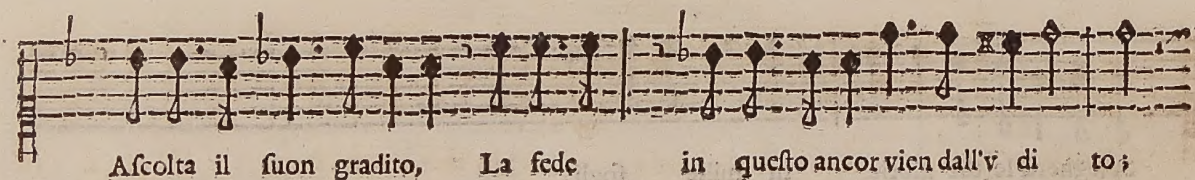 Aſcolta il ſuon gradito, La fede in queſto ancor vien dall'v di to;